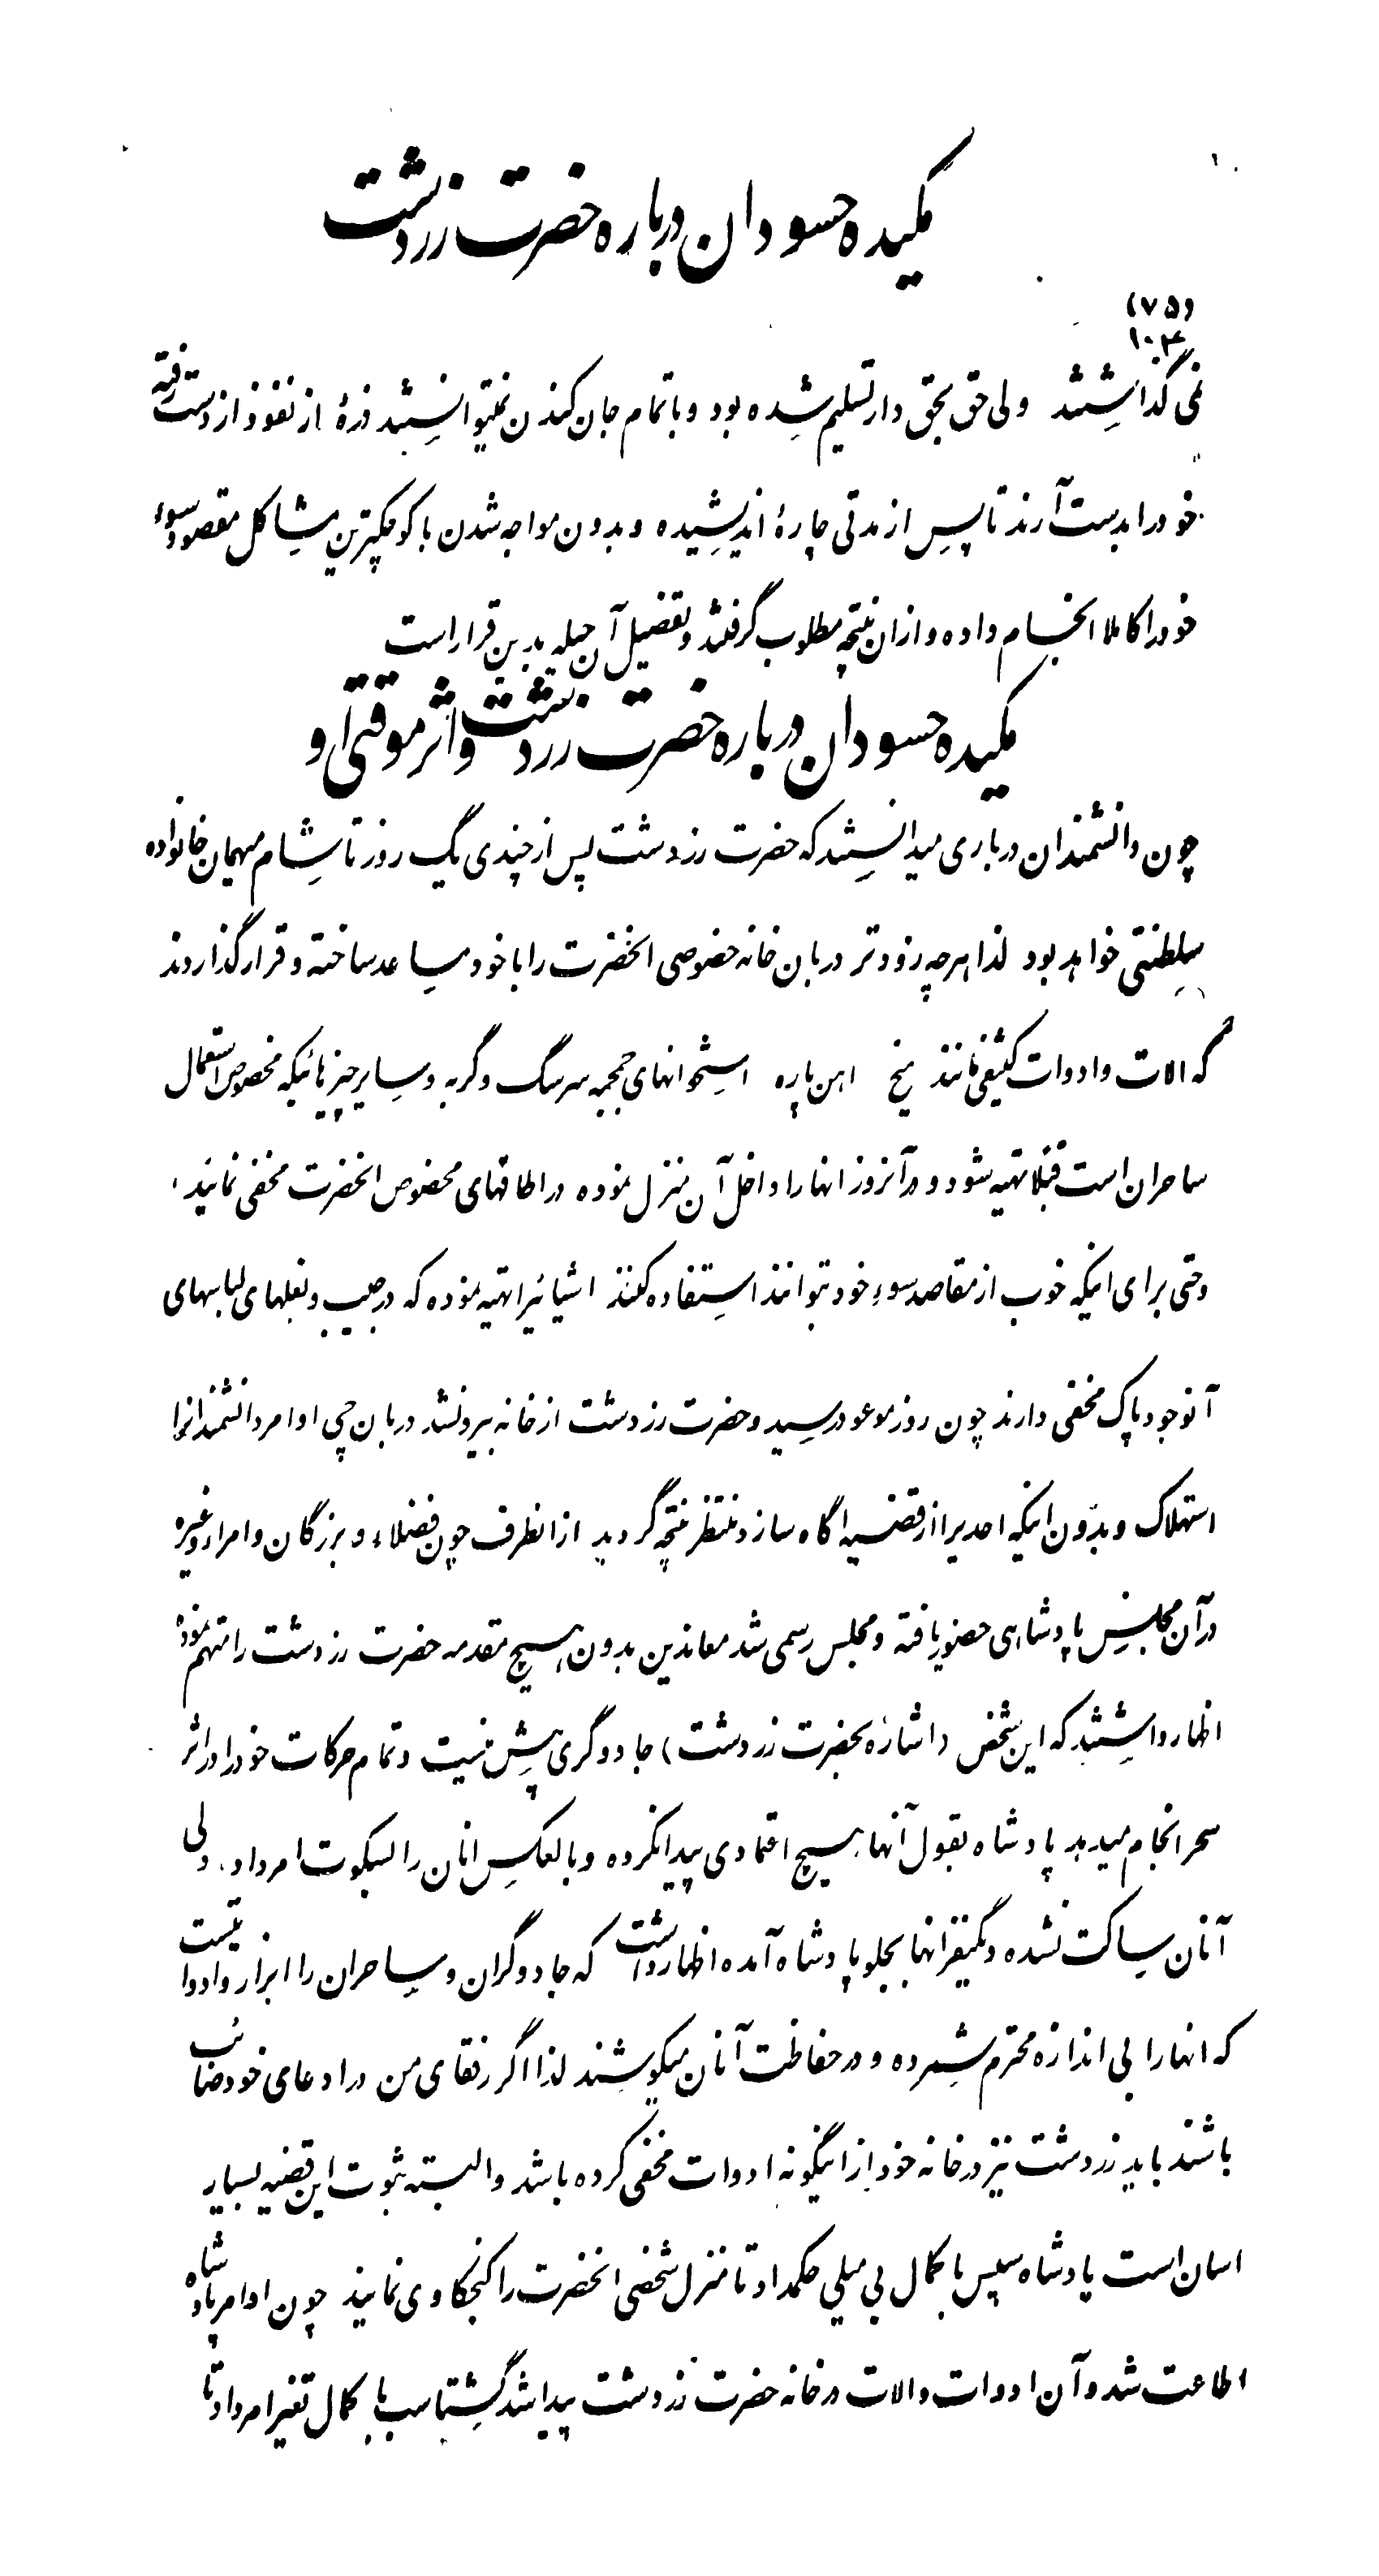 مکیده حسودان درباره حضرت زردشت
(۷۵)
۱۰۳
نمی گذاشتند ولی حق بحق دار تسلیم شده بود و با تمام جان کندن نمیتوانستند ذرهٔ از نفوذ از دست رفته
خود را بدست آرند تا پس از مدتی چارهٔ اندیشیده و بدون مواجه شدن با کوچکترین مشاکل مقصود سوء
خود را کاملا انجام داده و از ان نتیجه مطلوب گرفتند و تفضیل آن حیله بدین قرار است
مکیده حسودان درباره حضرت زردشت و اثر موقتی او
چون دانشمندان درباری میدانستند که حضرت زردشت پس از چندی یک روز تا شام میهمان خانواده
سلطنتی خواهد بود لذا هر چه زودتر دربان خانه خصوصی انحضرت را با خود مساعد ساخته و قرار گذاردند
که الات و ادوات کثیفی مانند میخ اهن پاره استخوانهای جمجمه سر سگ و گربه و سایر چیزهائیکه مخصوص استعمال
ساحران است قبلا تهیه شود و در آنروز انها را داخل آن منزل نموده در اطاقهای مخصوص انحضرت مخفی نمایند
و حتی برای اینکه خوب از مقاصد سوء خود بتوانند استفاده کنند اشیائیرا تهیه نموده که در جیب و بغلهای لباسهای
آنوجود پاک مخفی دارند چون روز موعود رسید و حضرت زردشت از خانه بیرونشد دربان چی اوامر دانشمندانرا
استهلاک و بدون اینکه احدیرا از قضیه اگاه سازد منتظر نتیجه گردید از انطرف چون فضلاء و بزرگان و امراء و غیره
در آن مجلس پادشاهی حضور یافته و مجلس رسمی شد معاندین بدون هیچ مقدمه حضرت زردشت را متهم نموده
اظهار داشتند که این شخص (اشاره بحضرت زردشت) جادوگری بیش نیست و تمام حرکات خود را در اثر
سحر انجام میدهد پادشاه بقول آنها هیچ اعتمادی پیدا نکرده و بالعکس انان را بسکوت امر داد، ولی
آنان ساکت نشده و یکنفر انها بجلو پادشاه آمده اظهار داشت که جادوگران و ساحران را ابزار و ادواتیست
که انها را بی اندازه محترم شمرده و در حفاظت آنان میکوشند لذا اگر رفقای من در ادعای خود صائب
باشند باید زردشت نیز در خانه خود از اینگونه ادوات مخفی کرده باشد و البته ثبوت این قضیه بسیار
اسان است پادشاه سپس با کمال بی میلی حکمداد تا منزل شخصی انحضرت را کنجکاوی نمایند چون اوامر پادشاه
اطاعت شد و آن ادوات و الات در خانه حضرت زردشت پیدا شد گشتاسب با کمال تغیر امر داد تا